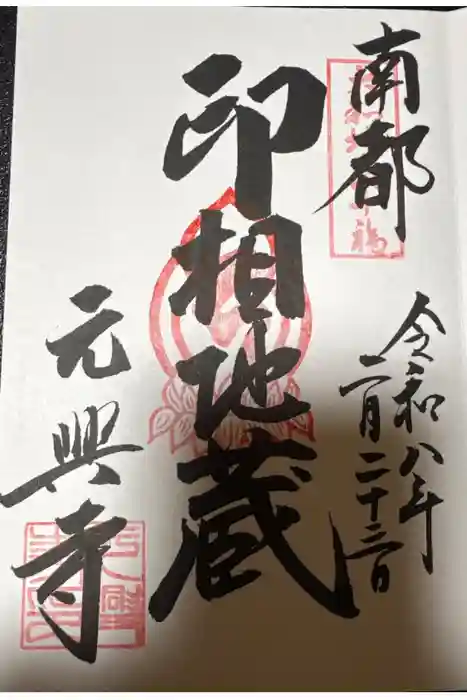 南都
令和八年
二月二十三日
印相地蔵
元興寺